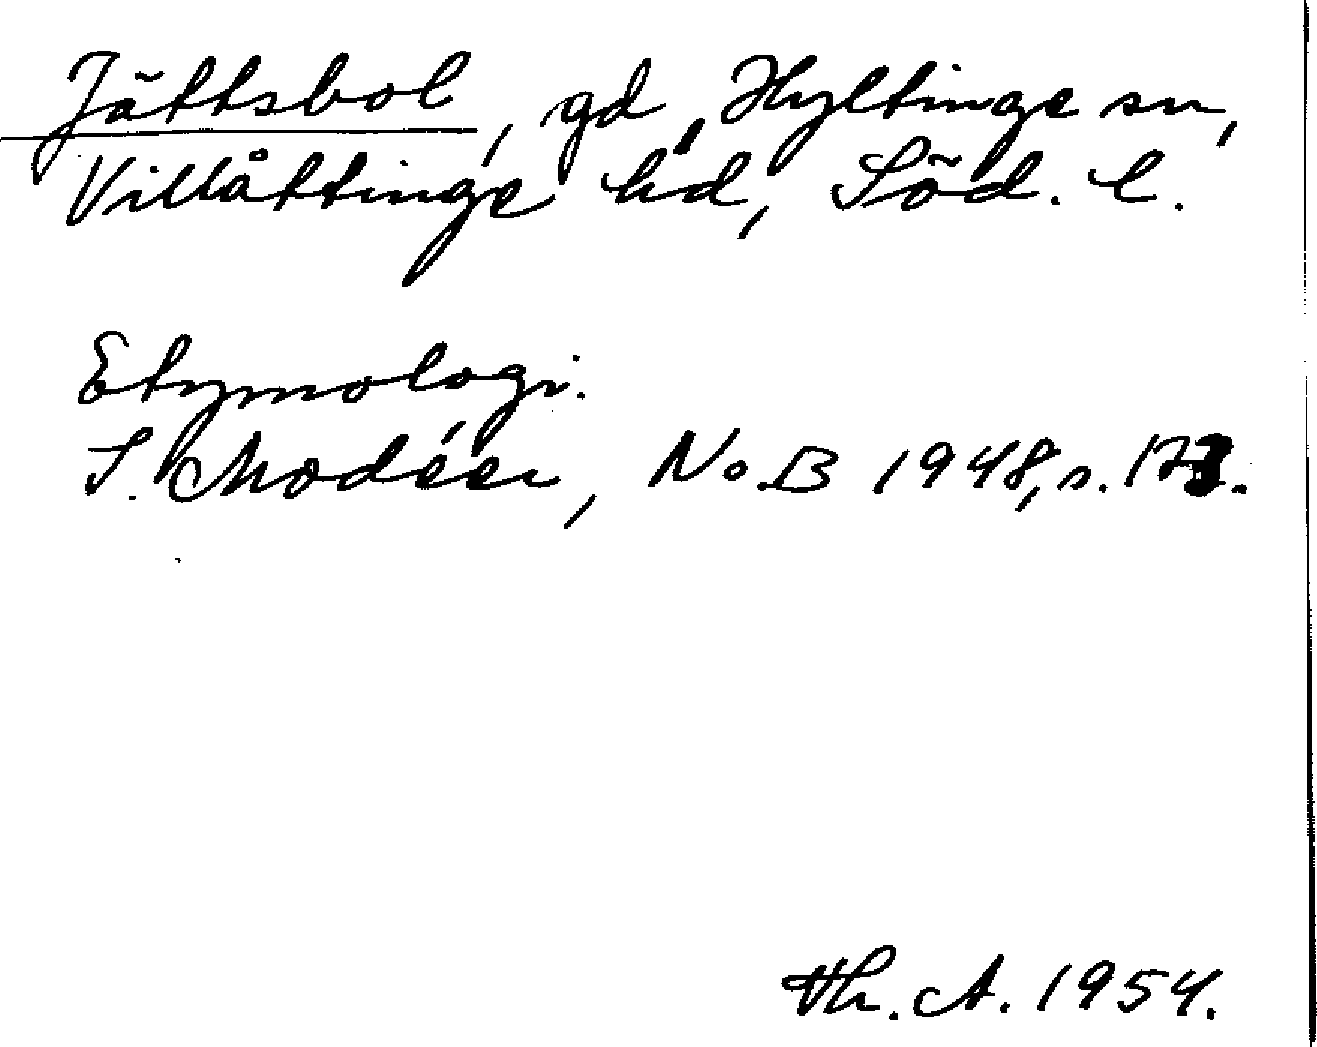 Jättsbol, gd, Hyltinge sn,
Villåttinge hd, Söd. l.
Etymologi.
I. Modéer, NoB 1948, s. 173.
Th. A. 1954.